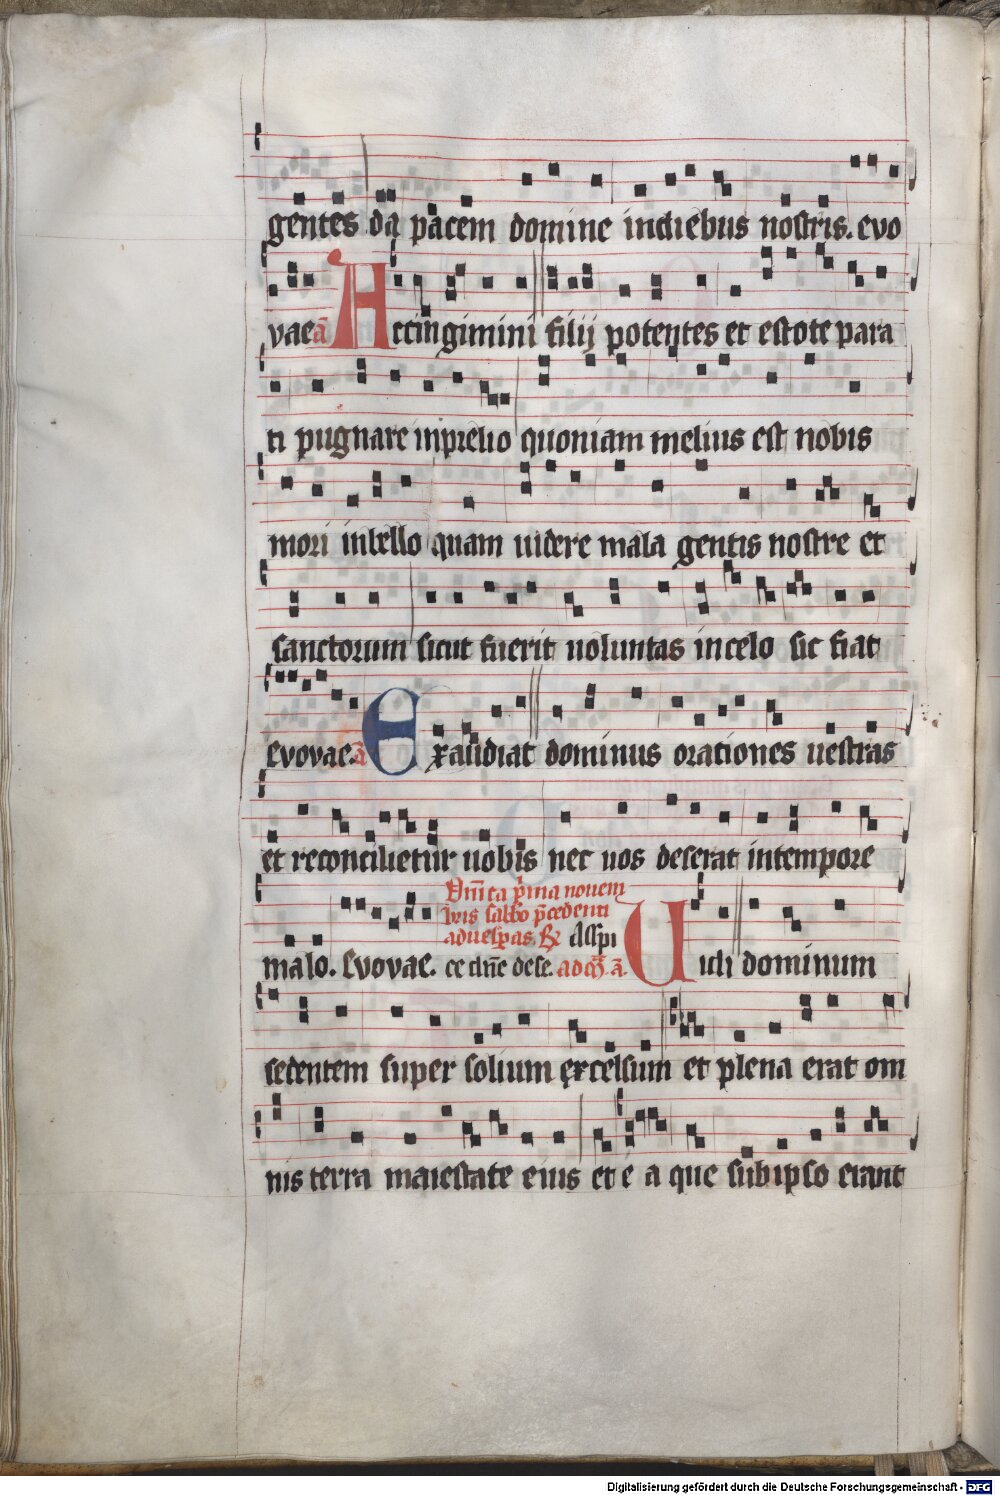 gentes da pacem domine in diebus nostris. evo
vae ā Accingimini filij potentes et estote para
ti pugnare in prelio quoniam melius est nobis
mori in bello quam uidere mala gentis nostre et
sanctorum sicut fuerit uoluntas in celo sic fiat
Evovae. ā Exaudiat dominus orationes uestras
et reconcilietur uobis nec uos deserat in tempore
Dn̄ica p̄ma nouem
bris sabbo p̄cedenti
ad uesꝑas Aspi
malo. Evovae. ce dn̄e de se. ā Uidi dominum
sedentem super solium excelsum et plena erat om
nis terra maiestate eius et e a que sub ipso erant
Digitalisierung gefördert durch die Deutsche Forschungsgemeinschaft - DFG